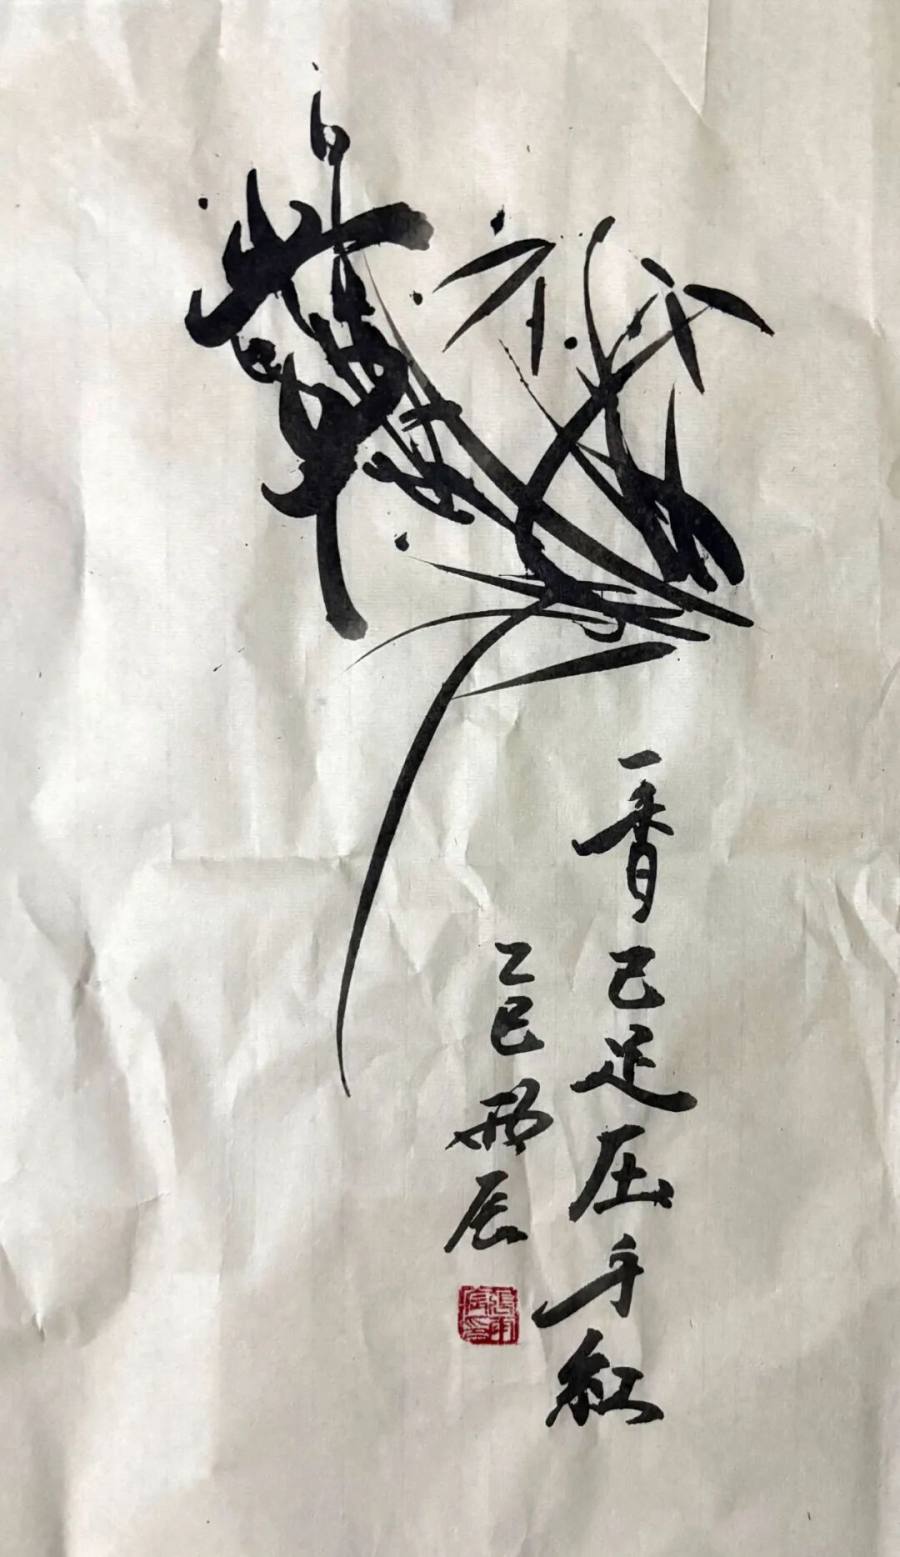 一香已足压千红
乙巳羽辰